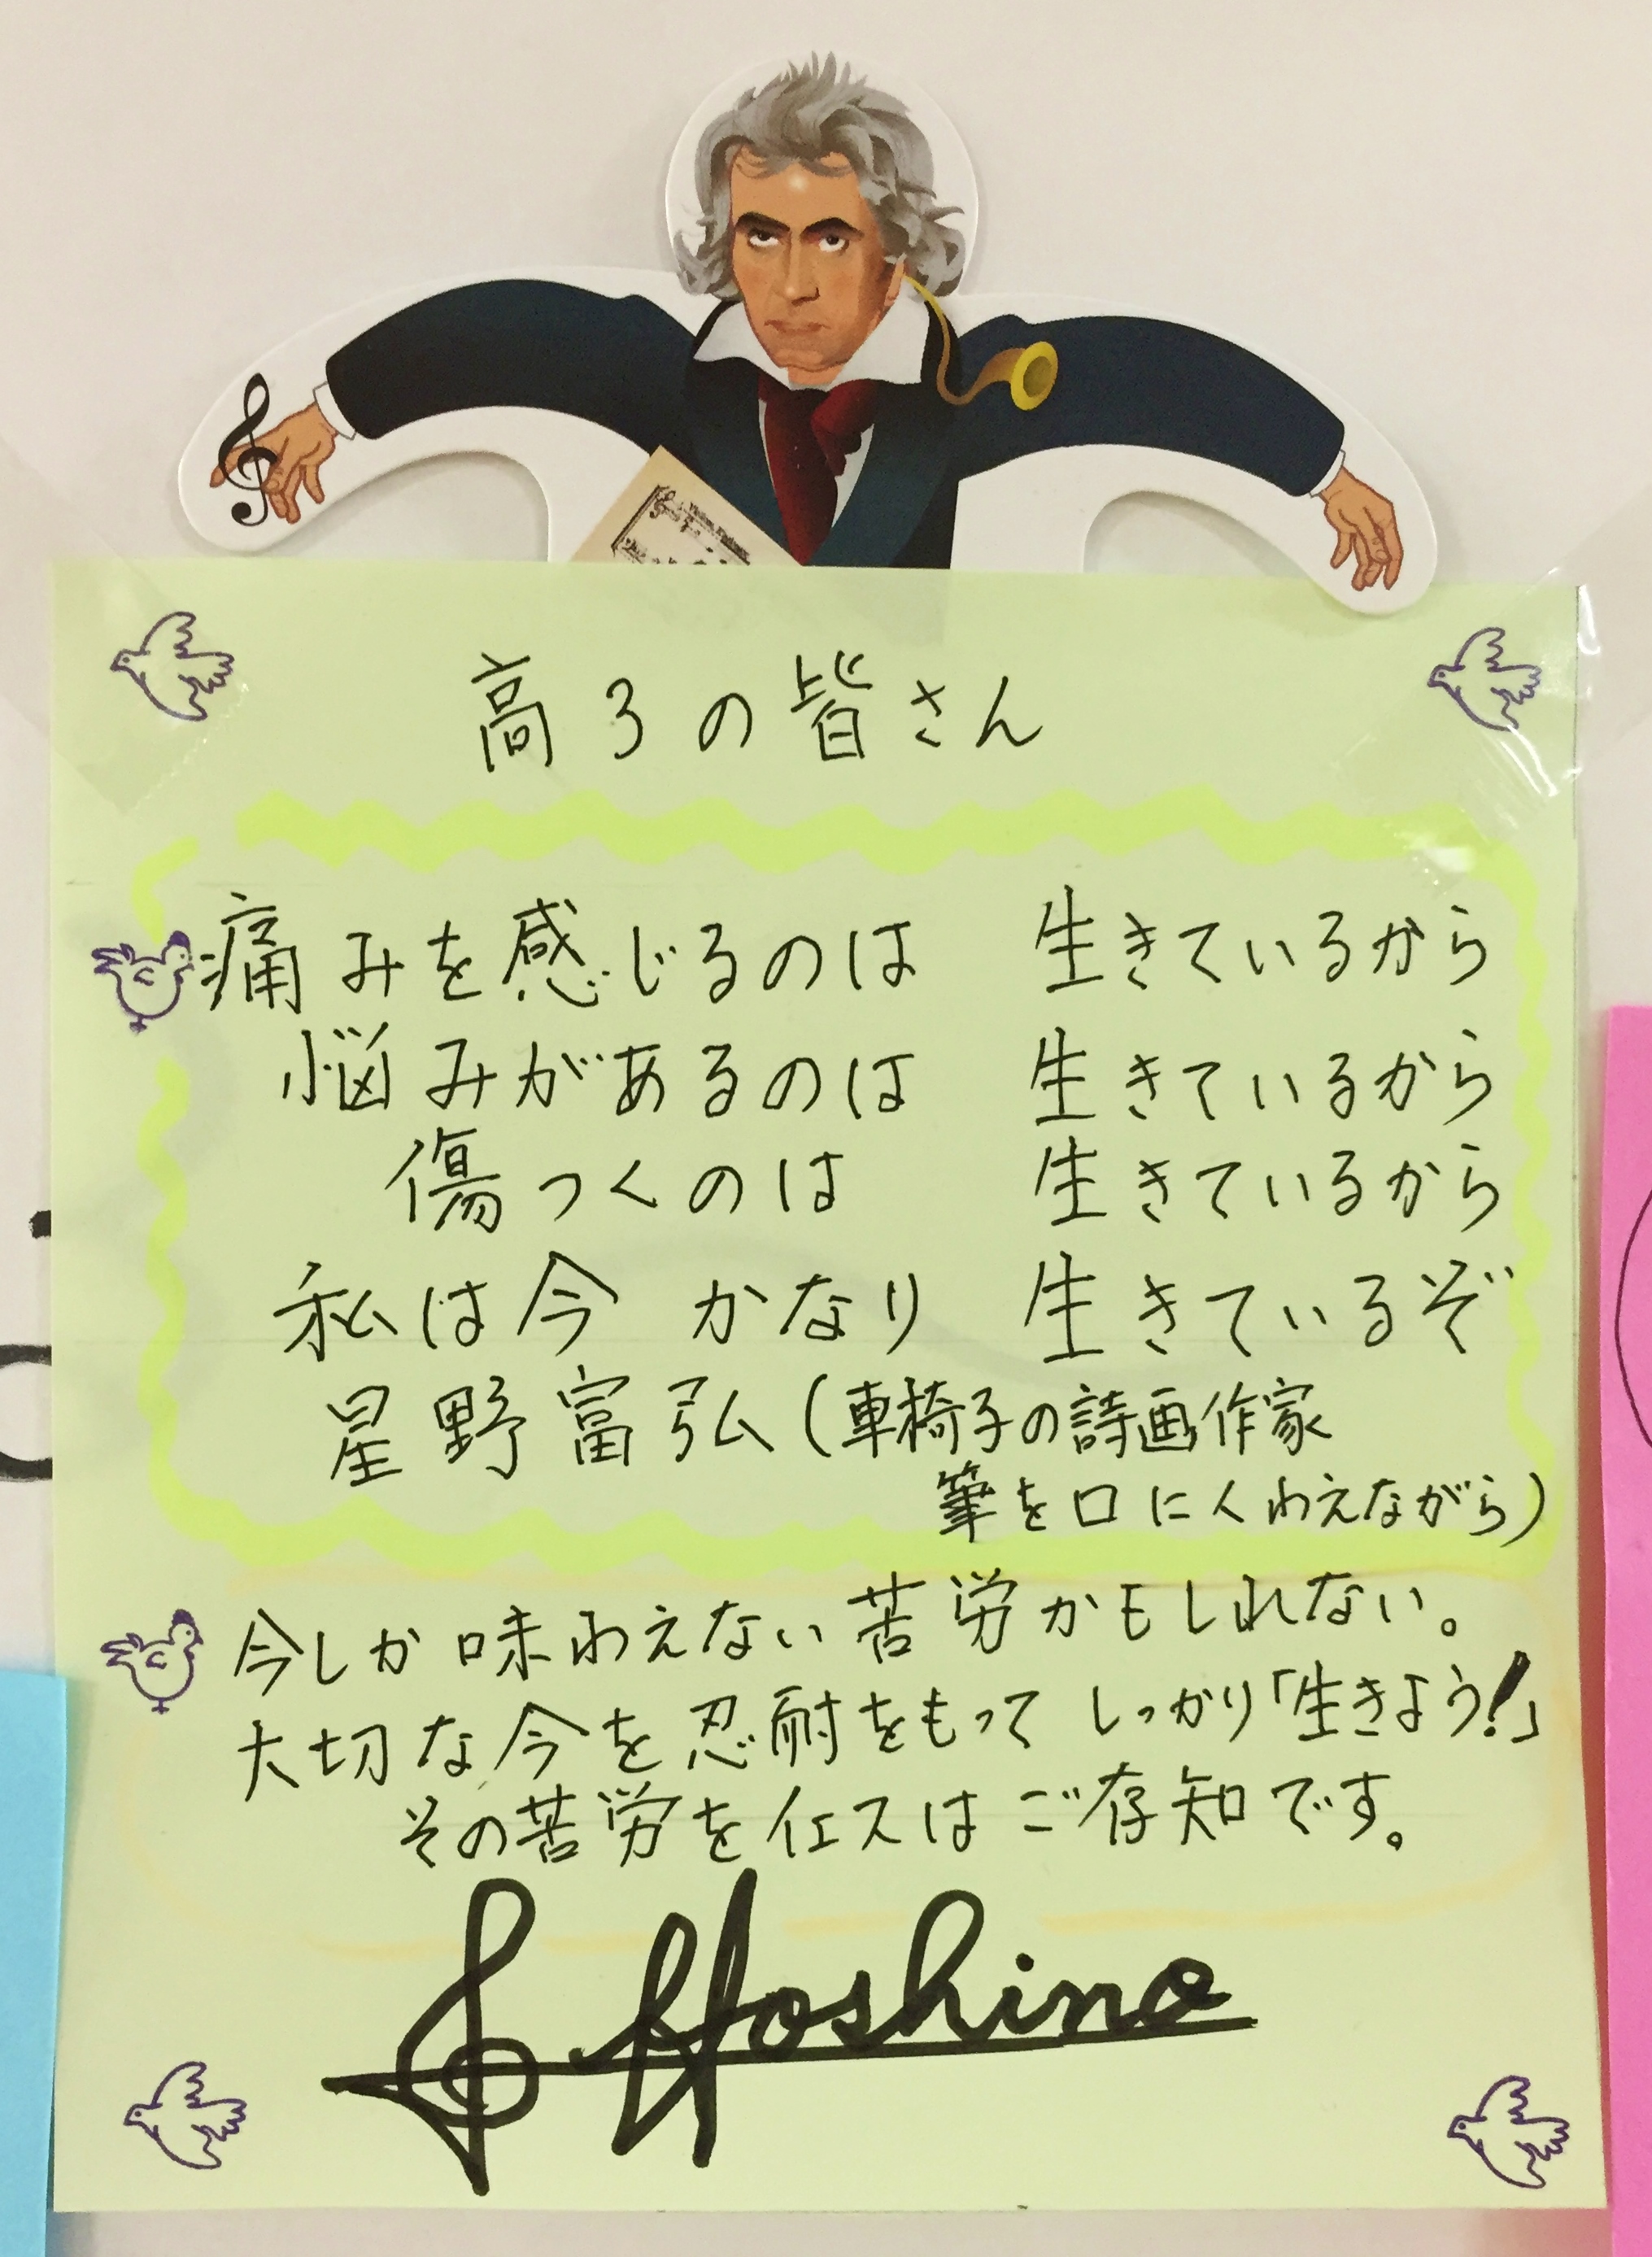 高3の皆さん
痛みを感じるのは 生きているから
悩みがあるのは 生きているから
傷つくのは 生きているから
私は今 かなり 生きているぞ
星野富弘(車椅子の詩画作家
筆を口にくわえながら)
今しか味わえない苦労かもしれない。
大切な今を忍耐をもって しっかり「生きよう!」
その苦労をイエスはご存知です。
Hoshino